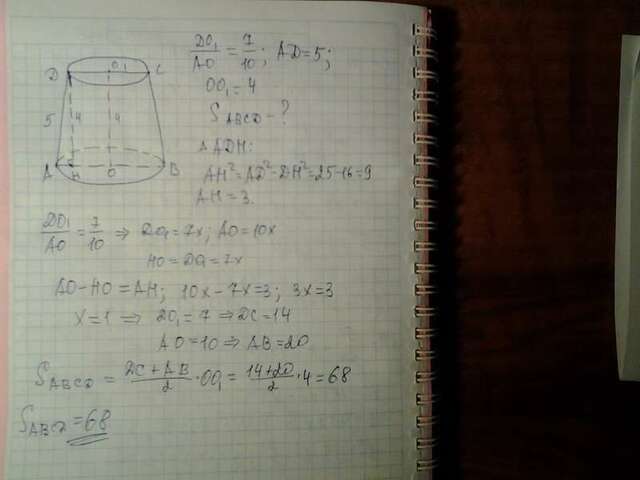 DO₁/AO = 7/10; AD=5;
OO₁ = 4
S ABCD - ?
ΔADH:
AH² = AD² - DH² = 25-16=9
AH = 3.
D O₁ C
5 4 4
A H O B
DO₁/AO = 7/10 ⇒ DO₁ = 7x; AO=10x
HO = DO₁ = 7x
AO - HO = AH; 10x - 7x=3; 3x=3
x=1 ⇒ DO₁ = 7 ⇒ DC=14
AO=10 ⇒ AB=20
S ABCD = (DC+AB)/2 · OO₁ = (14+20)/2 · 4 = 68
S ABCD = 68